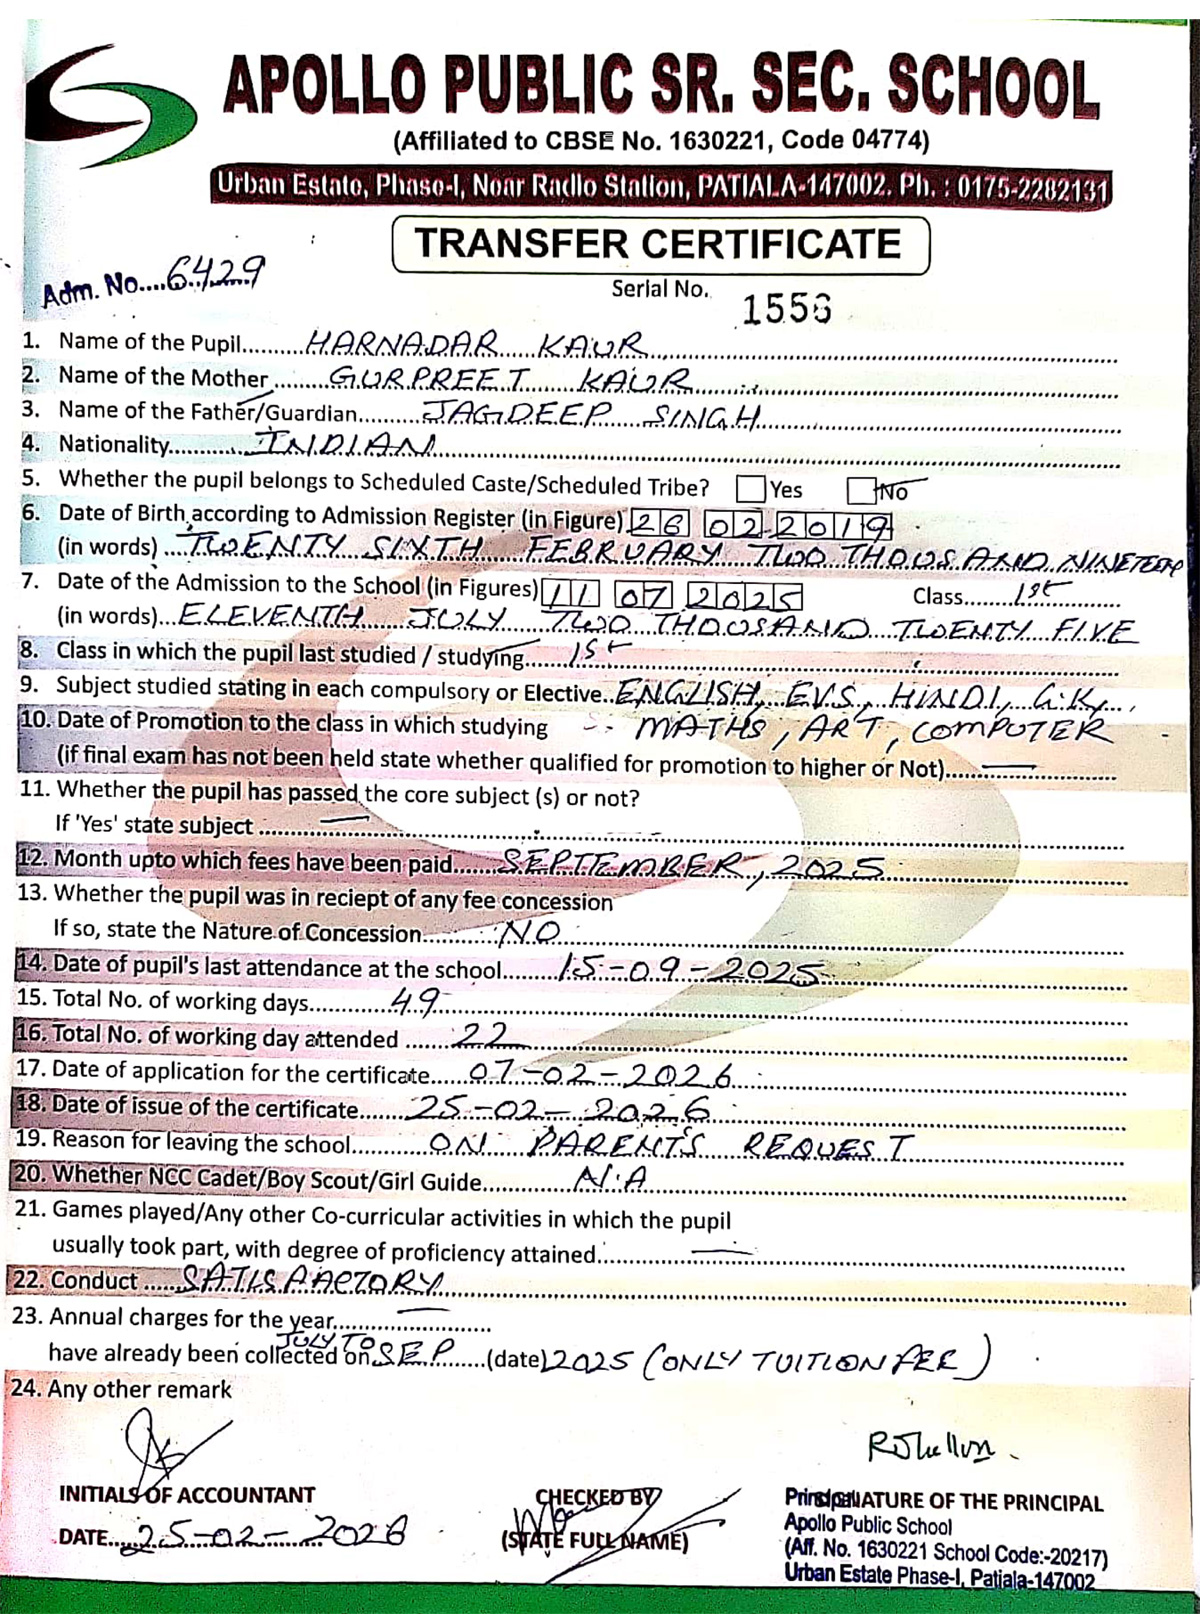 APOLLO PUBLIC SR. SEC. SCHOOL
(Affiliated to CBSE No. 1630221, Code 04774)
Urban Estate, Phase-I, Near Radio Station, PATIALA-147002. Ph. : 0175-2282131
TRANSFER CERTIFICATE
Adm. No....6429
Serial No. 1556
1. Name of the Pupil.........HARNADAR KAUR
2. Name of the Mother.......GURPREET KAUR
3. Name of the Father/Guardian.......JAGDEEP SINGH
4. Nationality............INDIAN
5. Whether the pupil belongs to Scheduled Caste/Scheduled Tribe? Yes No
6. Date of Birth according to Admission Register (in Figure) 26 02 2019
(in words) TWENTY SIXTH FEBRUARY TWO THOUSAND NINETEEN
7. Date of the Admission to the School (in Figures) 11 07 2025 Class........1st
(in words)...ELEVENTH JULY TWO THOUSAND TWENTY FIVE
8. Class in which the pupil last studied / studying......1st
9. Subject studied stating in each compulsory or Elective..ENGLISH, EVS, HINDI, G.K,
10. Date of Promotion to the class in which studying MATHS, ART, COMPUTER
(if final exam has not been held state whether qualified for promotion to higher or Not)......—
11. Whether the pupil has passed the core subject (s) or not?
If 'Yes' state subject ........—
12. Month upto which fees have been paid.......SEPTEMBER, 2025
13. Whether the pupil was in reciept of any fee concession
If so, state the Nature of Concession...........NO
14. Date of pupil's last attendance at the school........15-09-2025
15. Total No. of working days...........49
16. Total No. of working day attended ........22
17. Date of application for the certificate......07-02-2026
18. Date of issue of the certificate........25-02-2026
19. Reason for leaving the school...........ON PARENT'S REQUEST
20. Whether NCC Cadet/Boy Scout/Girl Guide.............N.A
21. Games played/Any other Co-curricular activities in which the pupil
usually took part, with degree of proficiency attained...........—
22. Conduct ......SATISFACTORY
23. Annual charges for the year.......—
JULY TO
have already been collected on SEP.......(date) 2025 (ONLY TUITION FEE)
24. Any other remark
INITIALS OF ACCOUNTANT
CHECKED BY
Principal SIGNATURE OF THE PRINCIPAL
DATE.....25-02-2026
(STATE FULL NAME)
Apollo Public School
(Aff. No. 1630221 School Code:-20217)
Urban Estate Phase-I, Patiala-147002